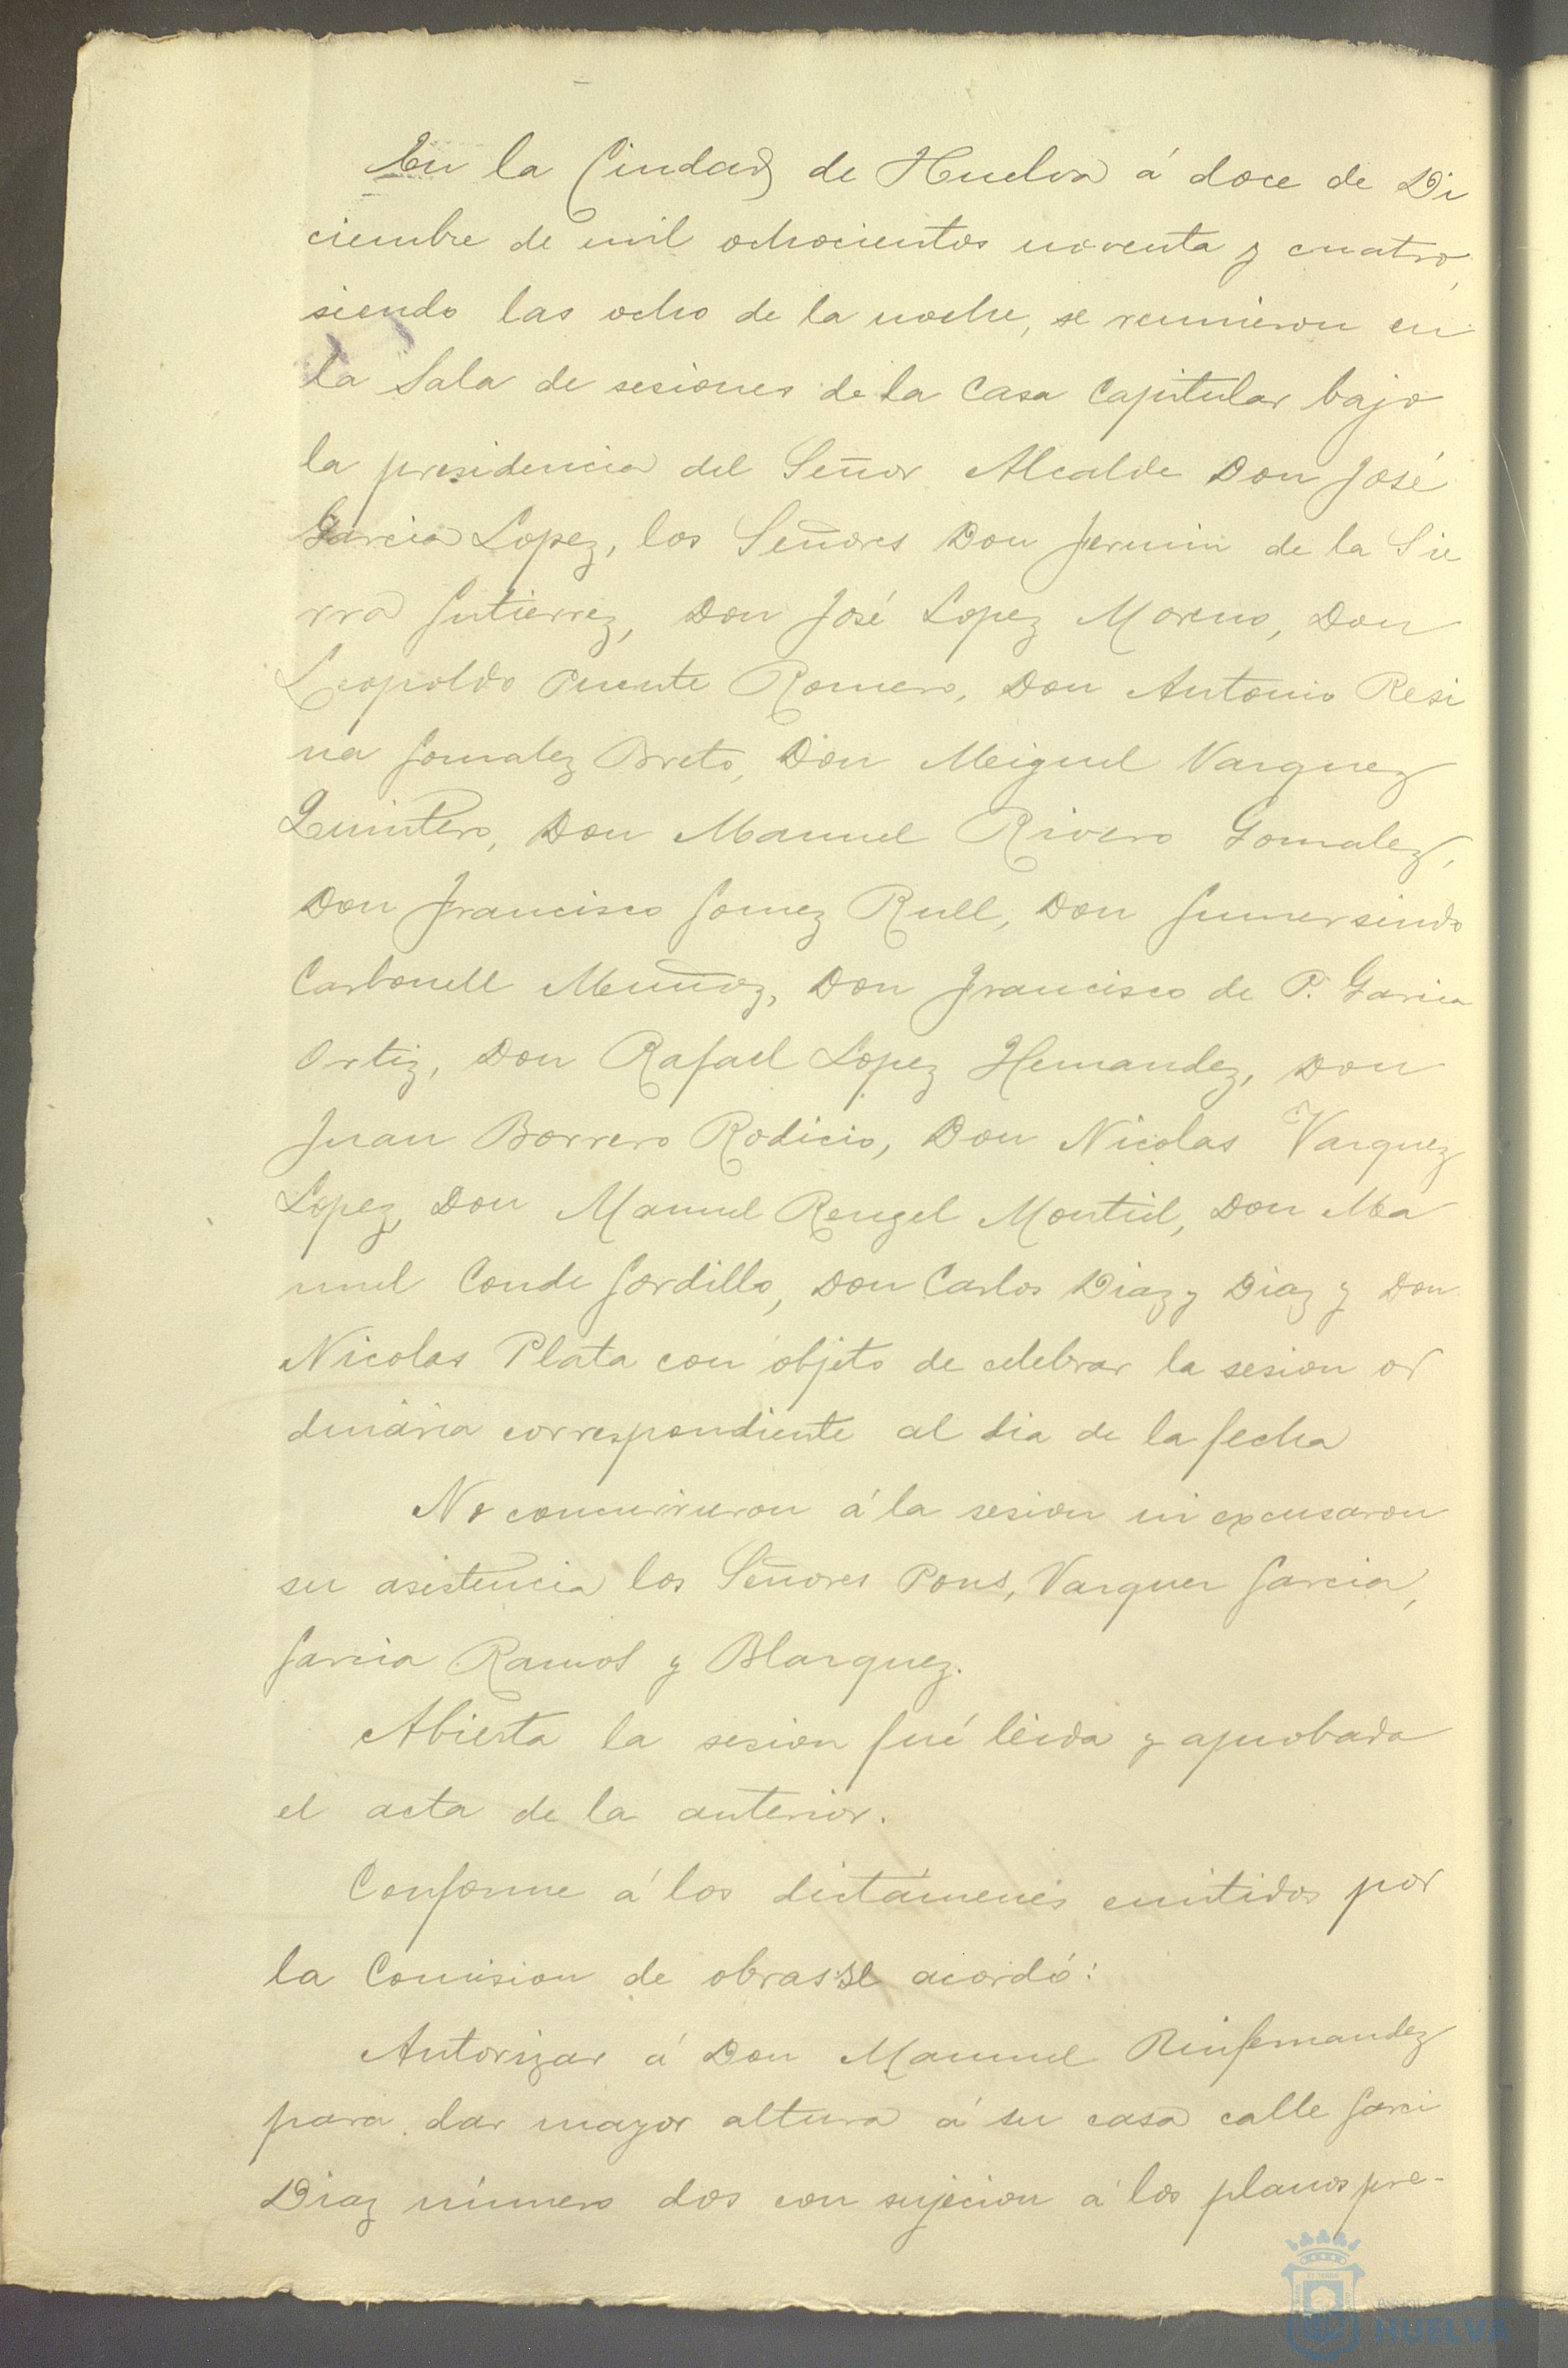 En la Ciudad de Huelva á doce de Di
ciembre de mil ochocientos noventa y cuatro,
siendo las ocho de la noche, se reunieron en
la Sala de sesiones de la Casa Capitular bajo
la presidencia del Señor Alcalde Don José
Garcia Lopez, los Señores Don Fermin de la Sie
rra Gutierrez, Don José Lopez Moreno, Don
Leopoldo Puente Romero, Don Antonio Resi
na Gonzalez Breto, Don Miguel Vazquez
Quintero, Don Manuel Rivero Gonzalez,
Don Francisco Gomez Rull, Don Gumersindo
Carbonell Muñoz, Don Francisco de P. Garcia
Ortiz, Don Rafael Lopez Hernandez, Don
Juan Borrero Rodicio, Don Nicolas Vazquez
Lopez, Don Manuel Rengel Montiel, Don Ma
nuel Conde Gordillo, Don Carlos Diaz y Diaz y Don
Nicolas Plata con objeto de celebrar la sesion or
dinaria correspondiente al dia de la fecha
No concurrieron á la sesion ni excusaron
su asistencia los Señores Pons, Vazquez Garcia,
Garcia Ramos y Blazquez.
Abierta la sesion fué leida y aprobada
el acta de la anterior.
Conforme á los dictámenes emitidos por
la Comision de obras se acordó:
Autorizar á Don Manuel Rinfernandez
para dar mayor altura á su casa calle Garci
Diaz número dos con sujecion á los planos pre-
HUELVA